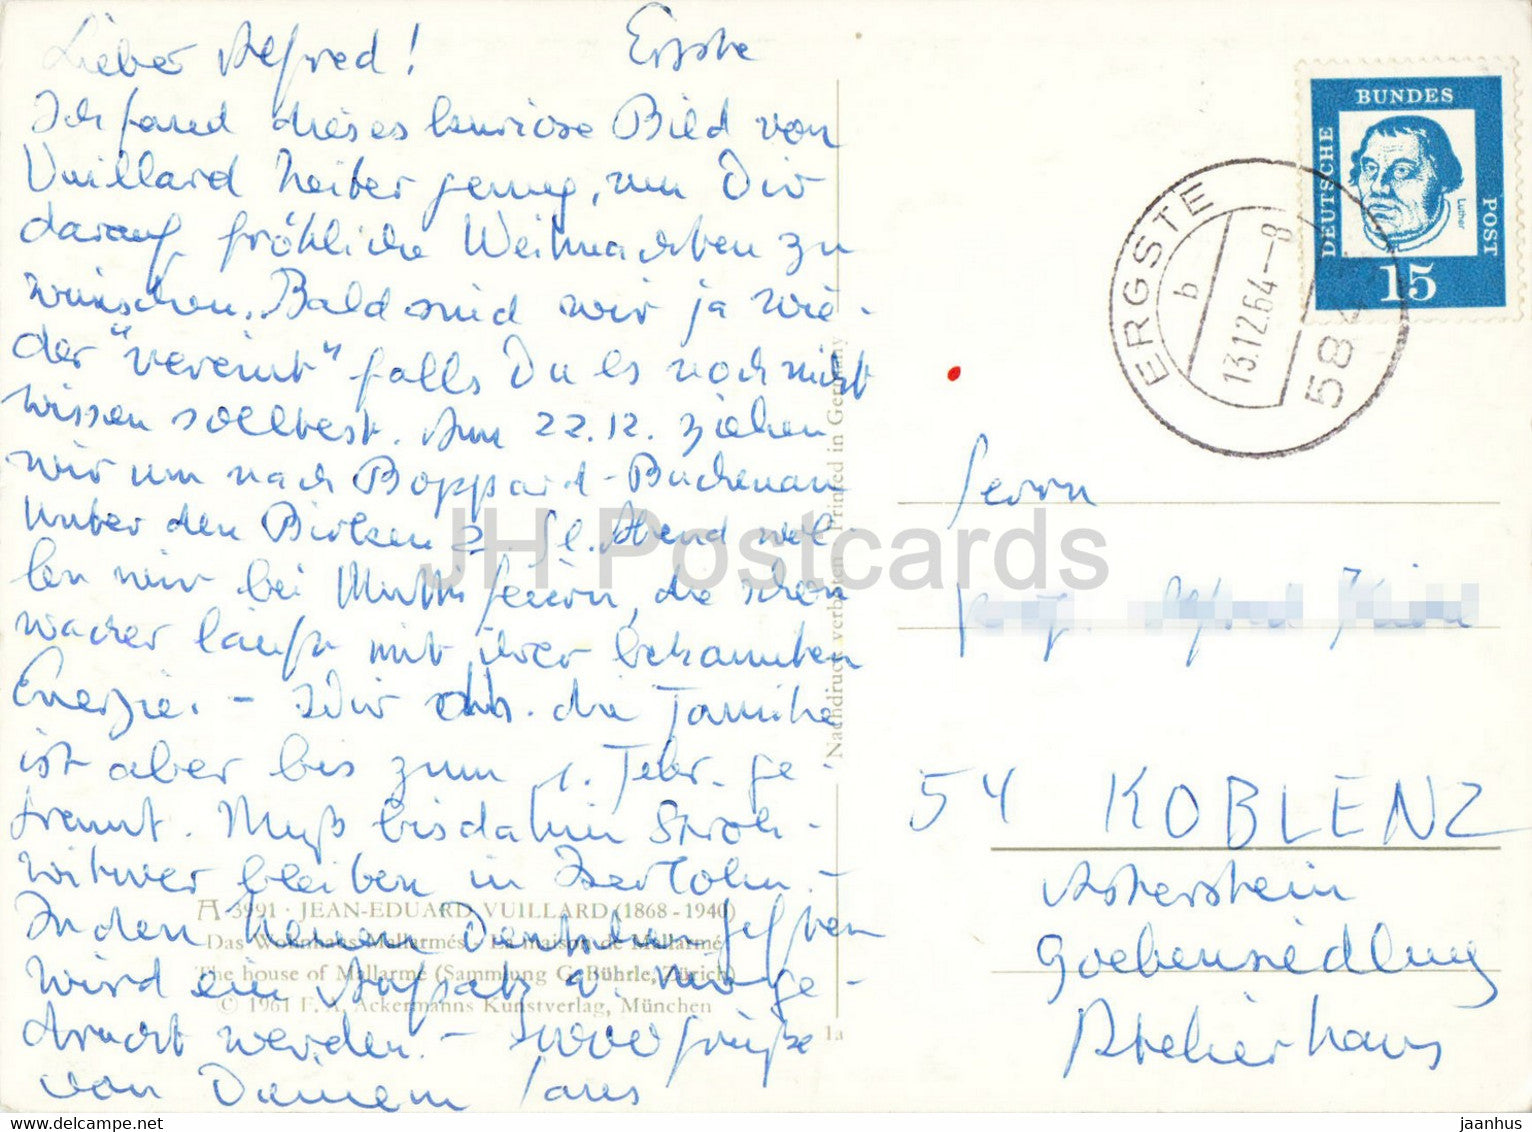 Lieber Alfred! Ergste
Ich fand dieses kuriose Bild von
Vuillard heiter genug, um Dir
darauf fröhliche Weihnachten zu
wünschen. Bald sind wir ja wie-
der "vereint" falls Du es noch nicht
wissen solltest. Am 22.12. ziehen
wir um nach Boppard-Buchenau
Unter den Birken 2. Hl. Abend wol-
len wir bei Mutti feiern, die schon
wacker läuft mit ihrer bekannten
Energie. - Wir die Familie
ist aber bis zum 1. Febr. ge-
trennt. Muß bis dahin Stroh-
witwer bleiben in Iserlohn. -
In den
wird ein Aufsatz v. mir ge-
druckt werden. - 1000 Grüße
von Deinem
A 3991 · JEAN-EDUARD VUILLARD (1868-1940)
Das Wohnhaus Mallarmés - La maison de Mallarmé
The house of Mallarmé (Sammlung G. Bührle, Zürich)
© 1961 F. A. Ackermanns Kunstverlag, München
1a
Nachdruck verboten Printed in Germany
DEUTSCHE BUNDES POST
Luther
15
ERGSTE
b
13.12.64-8
58
Herrn
Alfred
54 KOBLENZ
Asterstein
Goebensiedlung
Atelierhaus
JH Postcards
www.hippostcard.com
jaanhus